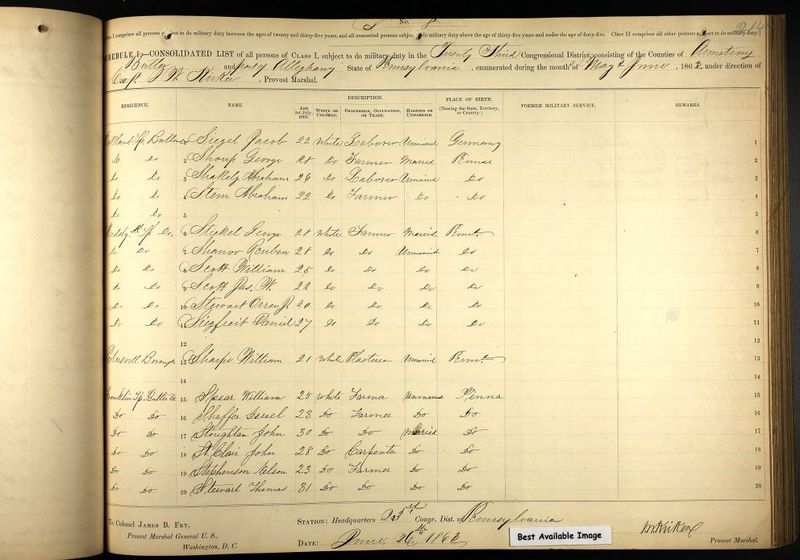 No.
Class I comprises all persons subject to do military duty between the ages of twenty and thirty-five years, and all unmarried persons subject to do military duty above the age of thirty-five years and under the age of forty-five. Class II comprises all other persons subject to do military duty
SCHEDULE I.—CONSOLIDATED LIST of all persons of CLASS I, subject to do military duty in the Twenty Third Congressional District, consisting of the Counties of Armstrong
Butler and part of Allegheny State of Pennsylvania, enumerated during the month of May & June, 186 under direction of
Capt J W Kirker, Provost Marshal.
RESIDENCE. NAME. AGE 1st July 1863. DESCRIPTION. WHITE OR COLORED. PROFESSION, OCCUPATION, OR TRADE. MARRIED OR UNMARRIED. PLACE OF BIRTH. (Naming the State, Territory, or Country.) FORMER MILITARY SERVICE. REMARKS.
Siegel Jacob 22 White Laborer Unmarried Germany 1
Do Do 2 Shoup George 28 Do Farmer Married Penna 2
Do Do 3 Abraham 26 Do Laborer Unmarried Do 3
Do Do 4 Stem Abraham 22 Do Farmer Do Do 4
Do Do 5 5
6 Stickel George 28 White Farmer Married 6
Do Do 7 Shanor Reuben 28 Do Do Unmarried Do 7
Do Do 8 Scott William 25 Do Do Do Do 8
Do Do 9 Scott Jas. W. 22 Do Do Do Do 9
Do Do 10 Stewart 20 Do Do Do Do 10
Do Do 11 Siegfreit Daniel 27 Do Do Do Do 11
12 12
Borough 13 Sharpe William 21 White Plasterer Unmarried 13
14 14
Franklin Tp Butler Co 15 Spear William 24 White Farmer Unmarried Penna 15
Do Do 16 Shaffer Israel 23 Do Farmer Do Do 16
Do Do 17 Stoughton John 30 Do Do Married Do 17
Do Do 18 St Clair John 28 Do Carpenter Do Do 18
Do Do 19 Stephenson Nelson 23 Do Farmer Do Do 19
Do Do 20 Stewart Thomas 31 Do Do Do Do 20
To Colonel JAMES B. FRY,
Provost Marshal General U. S.,
Washington, D. C.
STATION: Headquarters 23rd Congr. Dist. of Pennsylvania
DATE: June 26th 186
JW Kirker
Provost Marshal.
Best Available Image